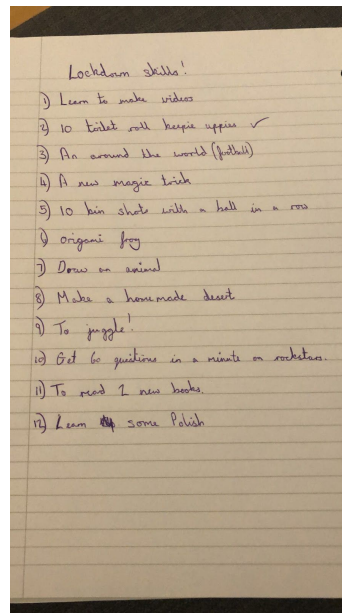 Lockdown skills!
1) Learn to make videos
2) 10 toilet roll keepie uppies ✓
3) An around the world (football)
4) A new magic trick
5) 10 bin shots with a ball in a row
6) origami frog
7) Draw an animal
8) Make a homemade desert
9) To juggle!
10) Get 60 questions in a minute on rockstars.
11) To read 2 new books.
12) Learn some Polish